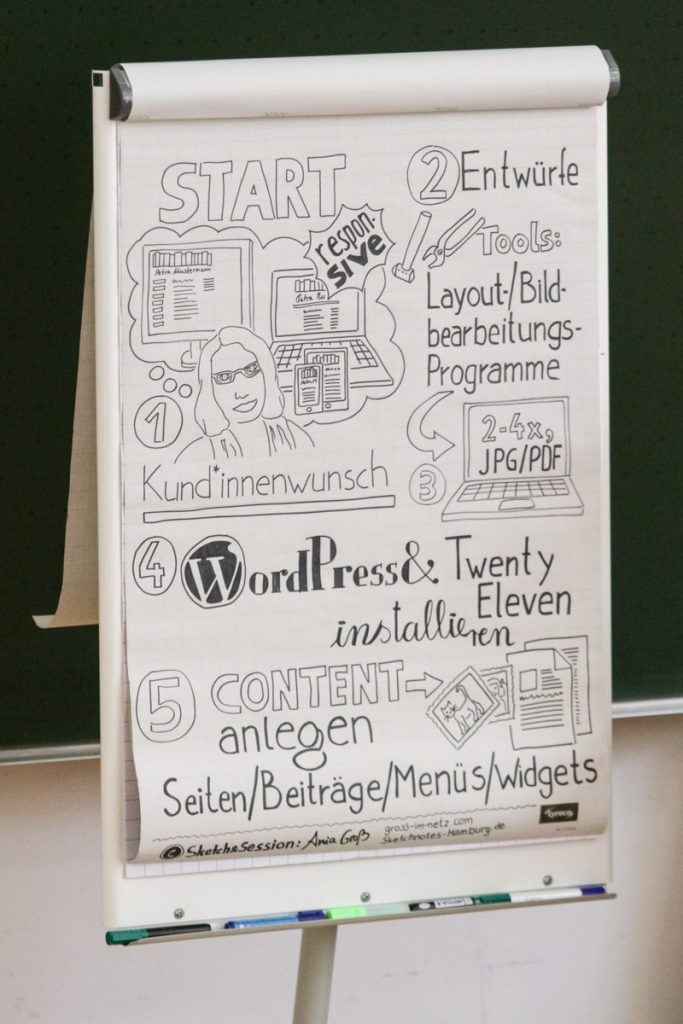 START
respon-
sive
Petra Mustermann
Petra Mu
1
Kund*innenwunsch
2 Entwürfe
Tools:
Layout-/Bild-
bearbeitungs-
Programme
3
2-4x,
JPG/PDF
4 WordPress & Twenty
Eleven
installieren
5 CONTENT
anlegen
Seiten/Beiträge/Menüs/Widgets
© Sketch&Session: Ania Groß
gross-im-netz.com
Sketchnotes-Hamburg.de